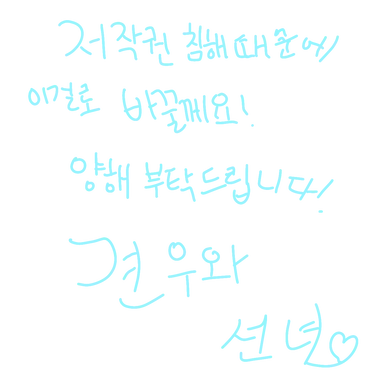 저작권 침해 때문에
이걸로 바꿀께요!
양해 부탁드립니다!
견우와
선녀♡